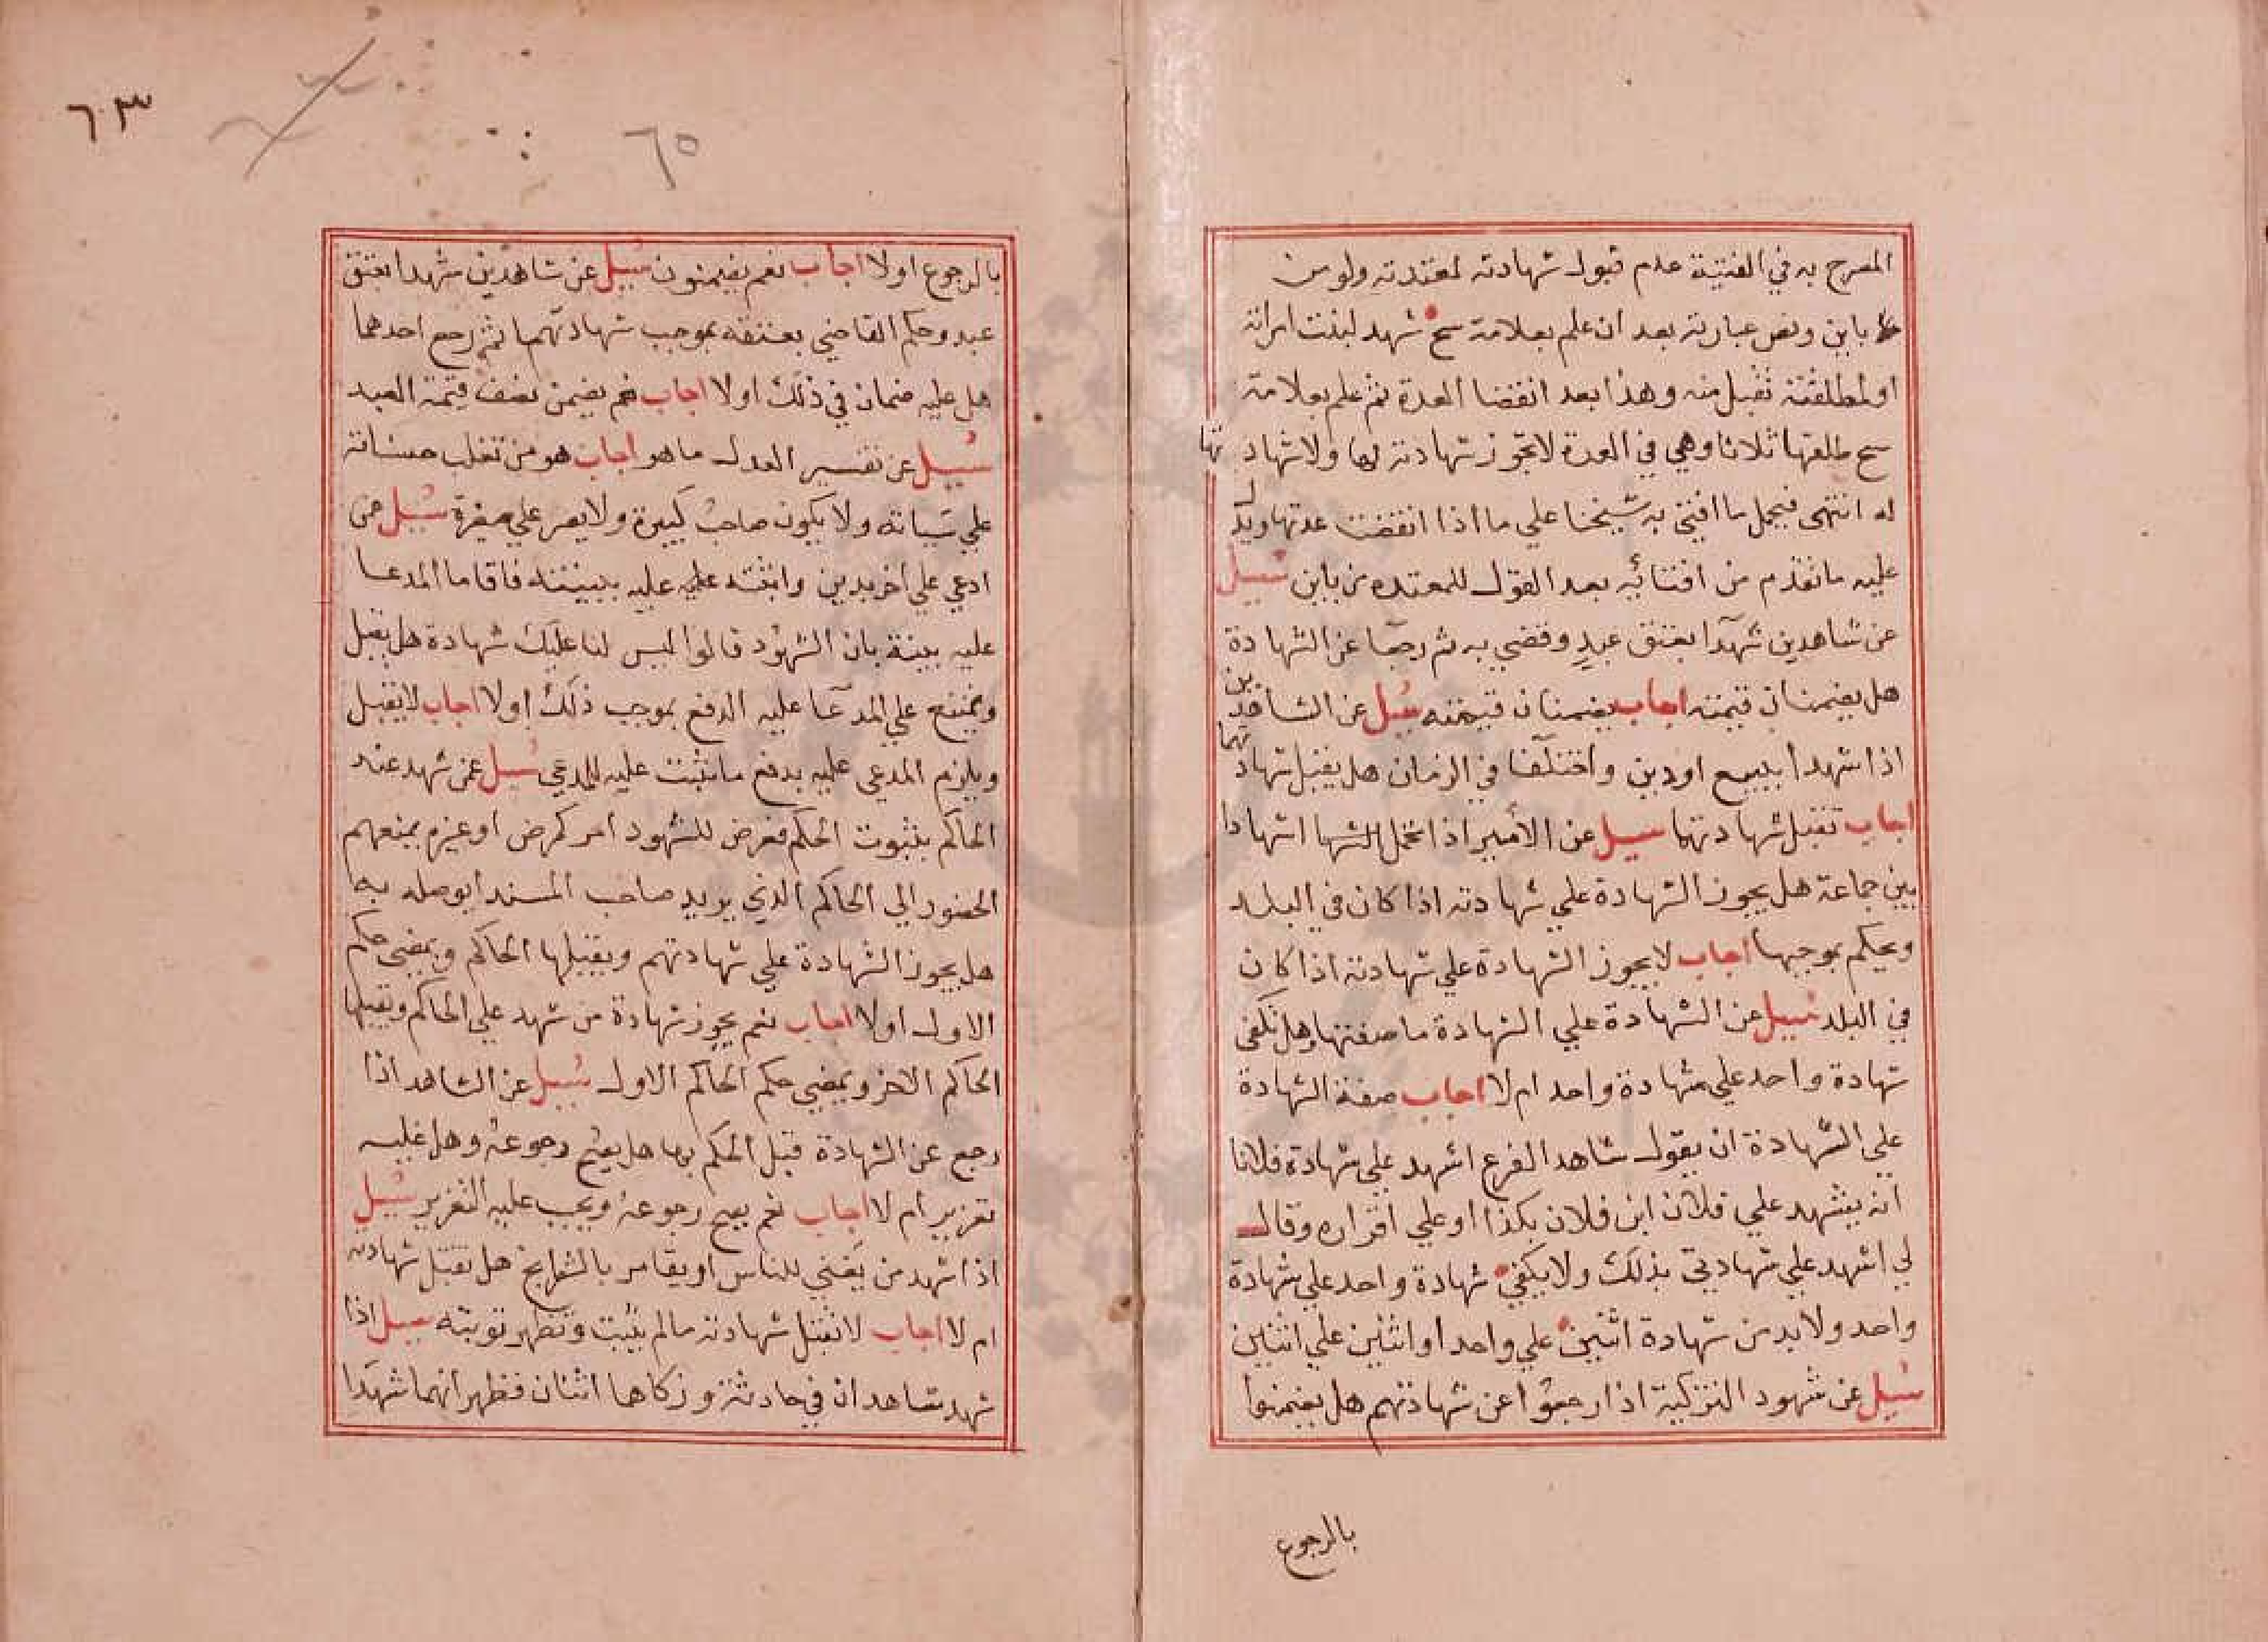 المصرح به في القنية عدم قبول شهادته لمعتدته ولو من
باين ونص عبارته بعد ان علم بعلامة سح شهد لبنت امراته
او لمطلقته تقبل منه وهذا بعد انقضا العدة ثم علم بعلامة
سح طلقها ثلاثا وهي في العدة لا تجوز شهادته لها ولا شهادتها
له انتهى فيحمل ما افتى به شيخنا علي ما اذا انقضت عدتها ويدل
عليه ما تقدم من افتائه بعد القول للمعتده من باين سيل
عن شاهدين شهدا بعتق عبد وقضي به ثم رجعا عن الشهادة
هل يضمنان قيمته اجاب يضمنان قيمته سيل عن الشاهدين
اذا شهدا ببيع او دين واختلفا في الزمان هل يقبل شهادتهما
اجاب تقبل شهادتهما سيل عن الأمير اذا تحمل الشها اشهادا
بين جماعة هل يجوز الشهادة علي شهادته اذا كان في البلد
ويحكم بموجبها اجاب لا يجوز الشهادة علي شهادته اذا كان
في البلد سيل عن الشهادة علي الشهادة ما صفتها وهل تكفي
شهادة واحد علي شهادة واحد ام لا اجاب صفة الشهادة
علي الشهادة ان يقول شاهد الفرع اشهد علي شهادة فلانا
انه يشهد علي فلان ابن فلان بكذا او علي اقراره وقال
لي اشهد علي شهادتي بذلك ولا يكفي شهادة واحد علي شهادة
واحد ولا بد من شهادة اثنين علي واحد او اثنين علي اثنين
سيل عن شهود التزكية اذا رجعوا عن شهادتهم هل يضمنوا
بالرجوع
٦٣
٦٥
بالرجوع اولا اجاب نعم يضمنون سيل عن شاهدين شهدا بعتق
عبد وحكم القاضي بعتقه بموجب شهادتهما ثم رجع احدهما
هل عليه ضمان في ذلك اولا اجاب نعم يضمن نصف قيمة العبد
سيل عن تفسير العدل ما هو اجاب هو من تغلب حسناته
علي سياته ولا يكون صاحب كبيرة ولا يصر علي صغرة سيل عمن
ادعي علي اخر بدين واثبته عليه ببينته فاقاما المدعا
عليه بينة بان الشهود قالوا ليس لنا عليك شهادة هل يقبل
ويمتنع علي المدعا عليه الدفع بموجب ذلك اولا اجاب لا يقبل
ويلزم المدعي عليه بدفع ما يثبت عليه للمدعي سيل عمن شهد عند
الحاكم بثبوت الحكم فعرض للشهود امر كمرض او غيره بمنعهم
الحضور الي الحاكم الذي يريد صاحب المسند ايوصله بها
هل يجوز الشهادة علي شهادتهم ويقبلها الحاكم ويمضي حكم
الاول اولا اجاب نعم يجوز شهادة من شهد علي الحاكم ويقبلها
الحاكم الاخر ويمضي حكم الحاكم الاول سيل عن الشاهد اذا
رجع عن الشهادة قبل الحكم بها هل يصح رجوعه وهل عليه
تعزير ام لا اجاب نعم يصح رجوعه ويجب عليه التعزير سيل
اذا شهد من يغني للناس او يقامر بالشطرنج هل تقبل شهادته
ام لا اجاب لا تقبل شهادته مالم يثبت وتظهر توبته سيل اذا
شهد شاهدان في حادثة وزكاها اثنان فظهر انهما شهدا